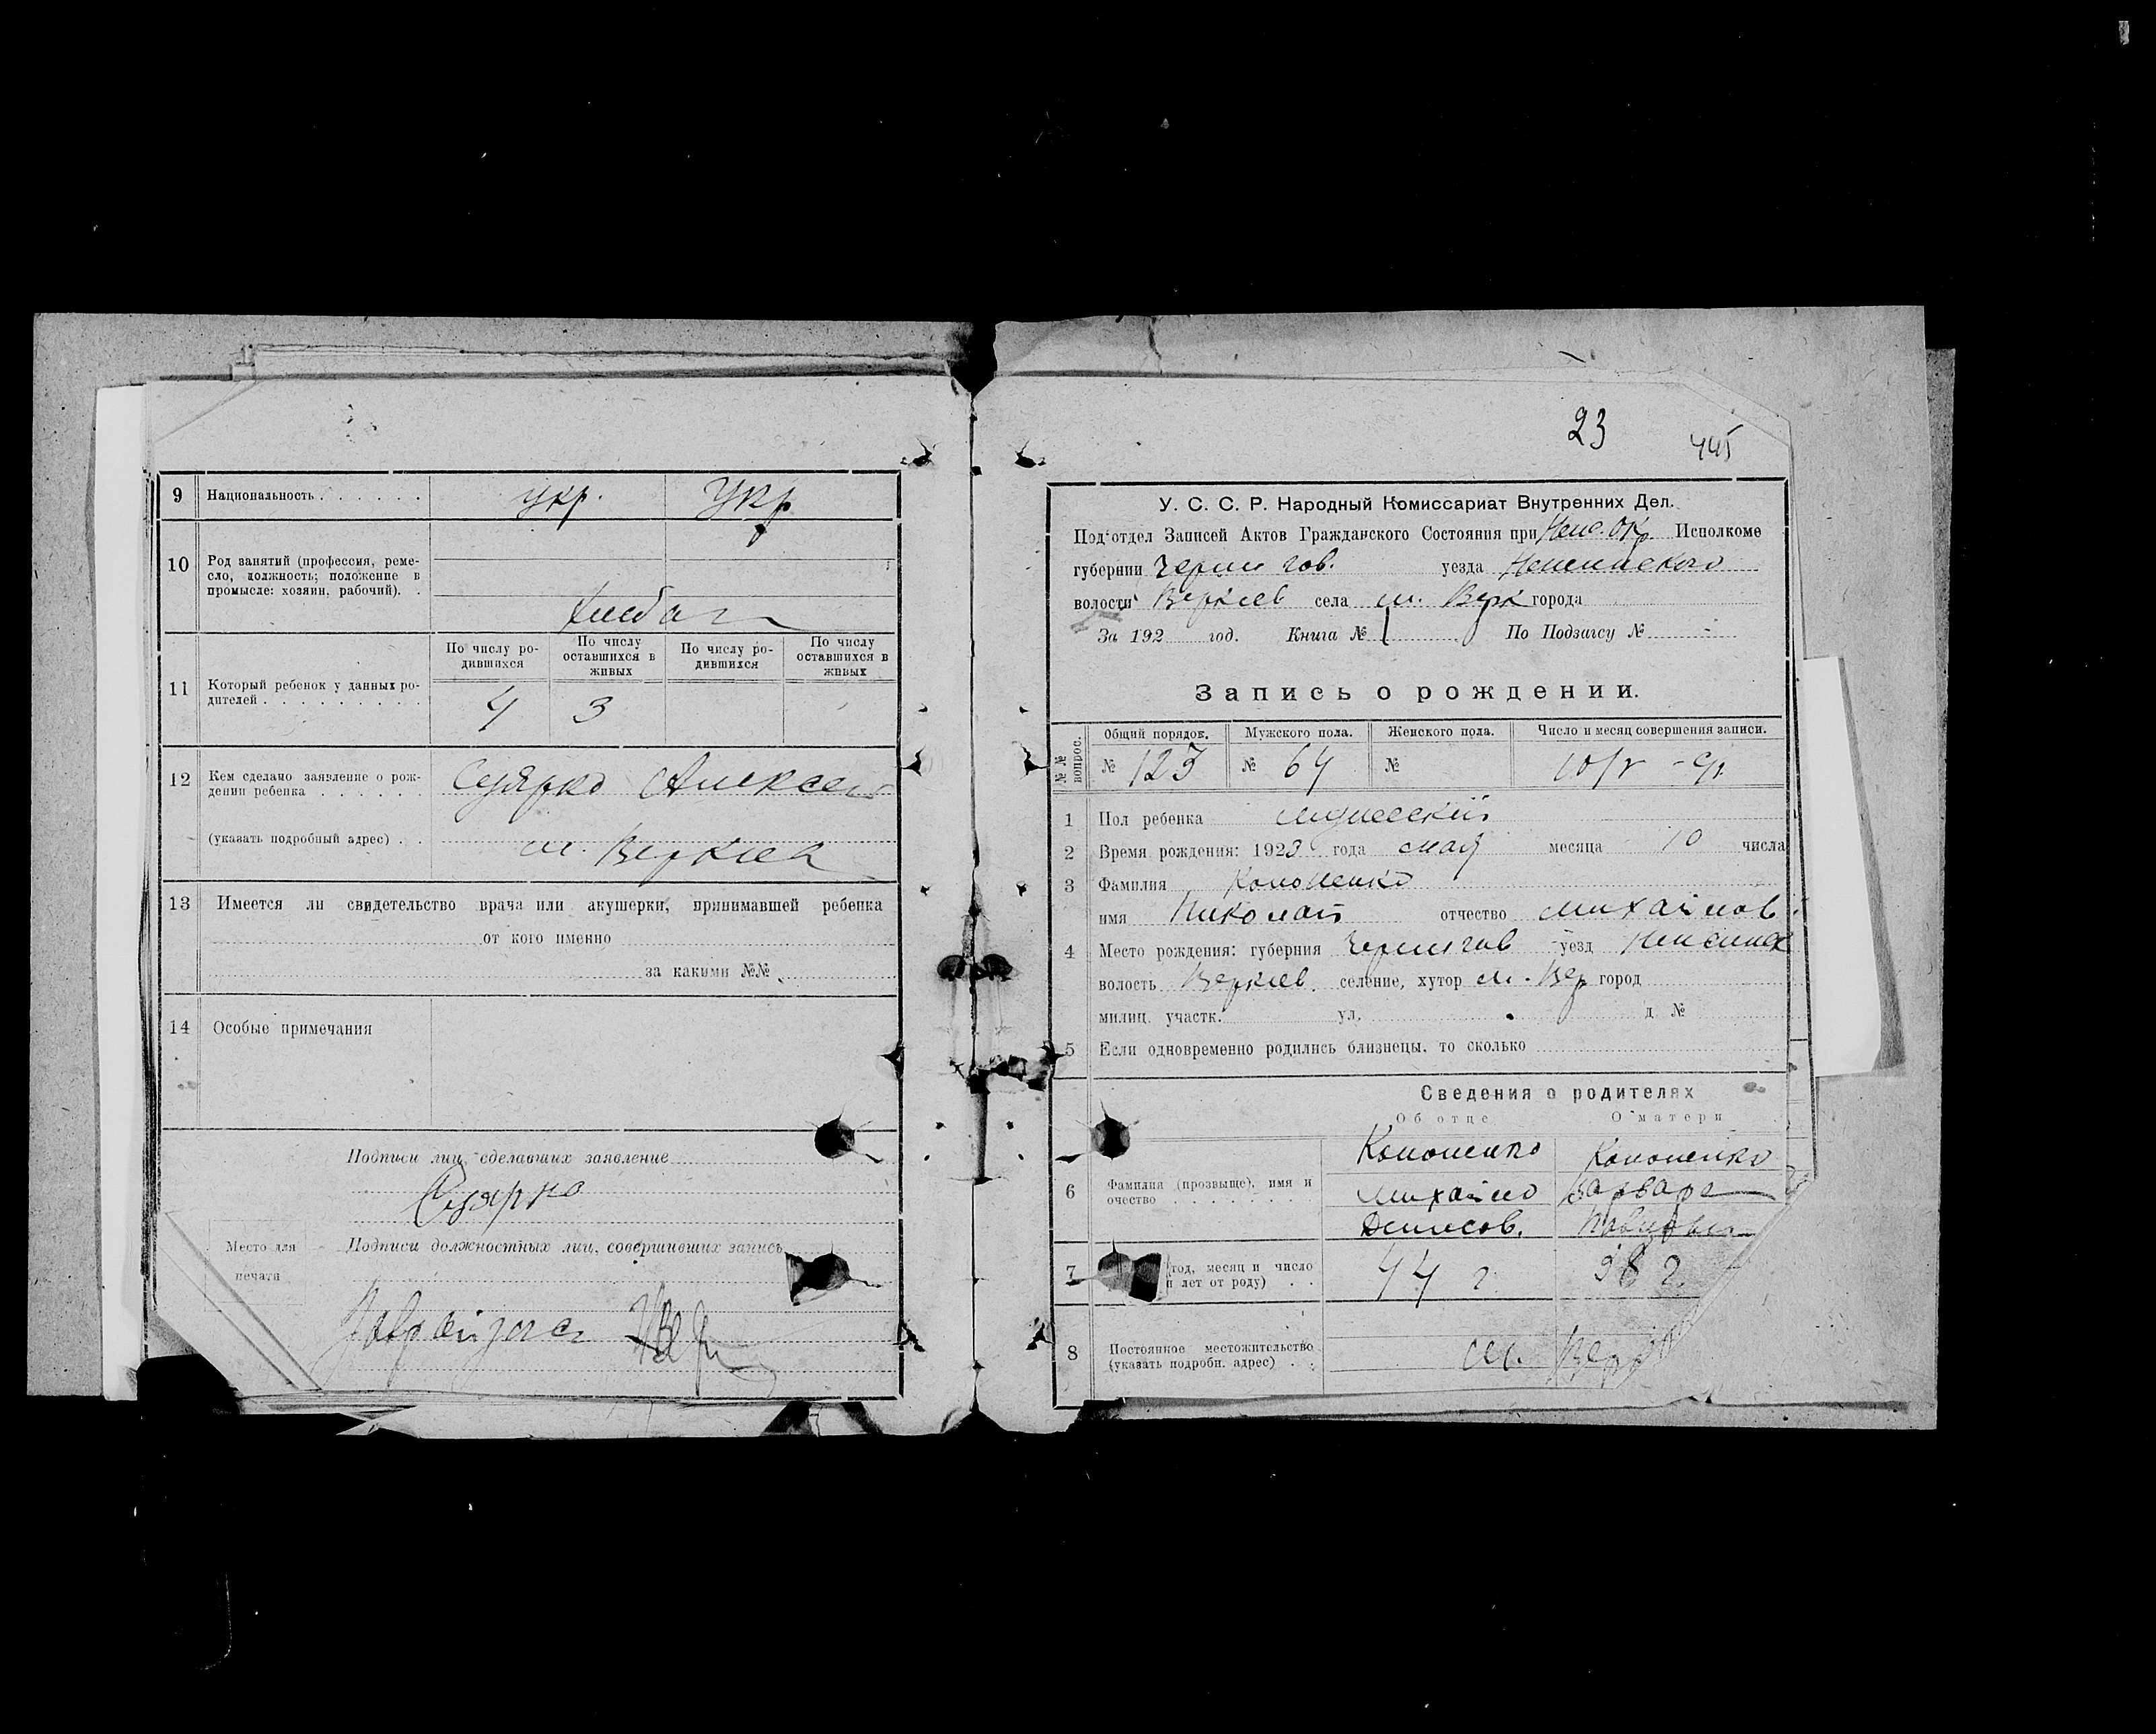 9 Национальность . . . . . . укр. Укр
10 Род занятий (профессия, реме-
сло, должность; положение в
промысле: хозяин, рабочий). .
По числу ро-
дившихся
По числу
оставшихся в
живых
По числу ро-
дившихся
По числу
оставшихся в
живых
11 Который ребенок у данных ро-
дителей . . . . . . . . . 4 3
12 Кем сделано заявление о рож-
дении ребенка . . . . . Алексей
(указать подробный адрес) . . м. Веркиев
13 Имеется ли свидетельство врача или акушерки, принимавшей ребенка
от кого именно
за какими №№
14 Особые примечания
Подписи лиц, сделавших заявление
Место для
печати
Подписи должностных лиц, совершивших запись
23
445
У. С. С. Р. Народный Комиссариат Внутренних Дел.
Подотдел Записей Актов Гражданского Состояния при Неж. Окр. Исполкоме
губернии Чернигов. уезда Неженского
волости Веркиев села м. Верк города
За 192 год. Книга № 1 По Подзагсу №
Запись о рождении.
№ № вопрос.
Общий порядок. Мужского пола. Женского пола. Число и месяц совершения записи.
№ 123 № 64 № 10/V
1 Пол ребенка мужеский
2 Время рождения: 1923 года мая месяца 10 числа
3 Фамилия Кононенко
имя Николай отчество Михайлов
4 Место рождения: губерния Чернигов уезд Неженск
волость Веркиев. селение, хутор м. Вер город
милиц. участк. ул. д №
5 Если одновременно родились близнецы, то сколько
Сведения о родителях
Об отце О матери
6 Фамилия (прозвыще), имя и
очество . . . . . . . .
Кононенко Кононенко
Михайло Варвара
Денисов.
7 год, месяц и число
и лет от роду) . . 44 г. 38 г.
8 Постоянное местожительство
(указать подробн. адрес) . . м. Верк